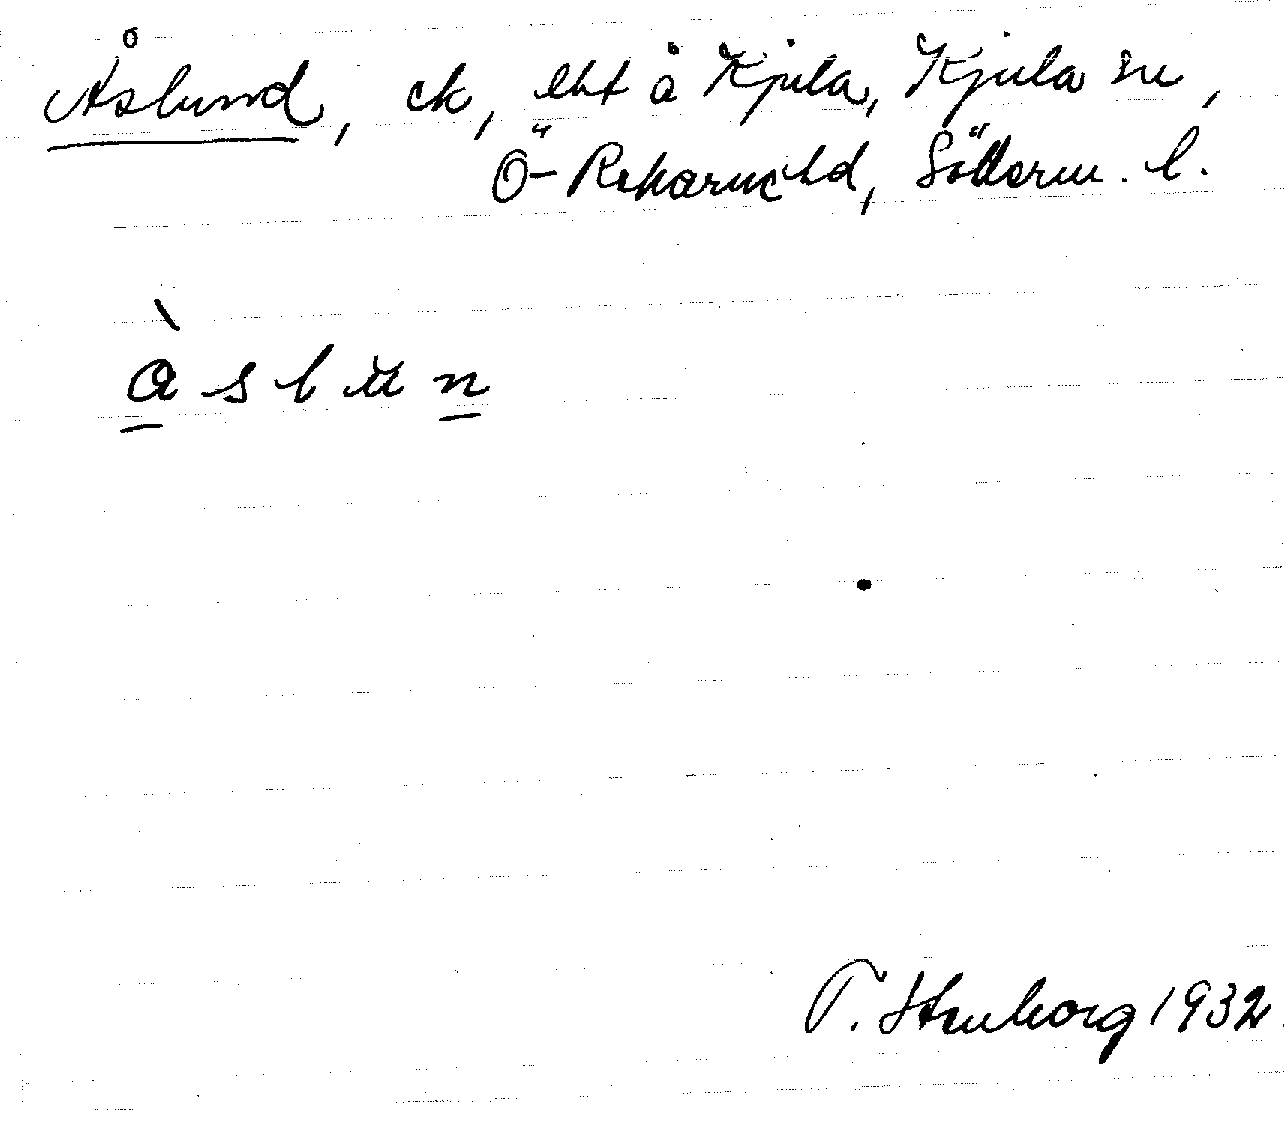 Åslund, ck, lht å Kjula, Kjula sn,
Ö-Rekarne hd, Söderm. l.
åslun
T. Stenborg 1932